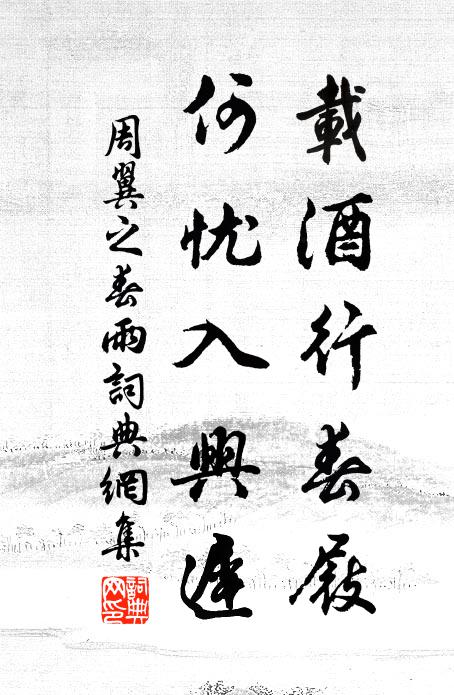 載酒行春屐
何忧入興遲
周翼之春雨詞典網集
詞典
网印